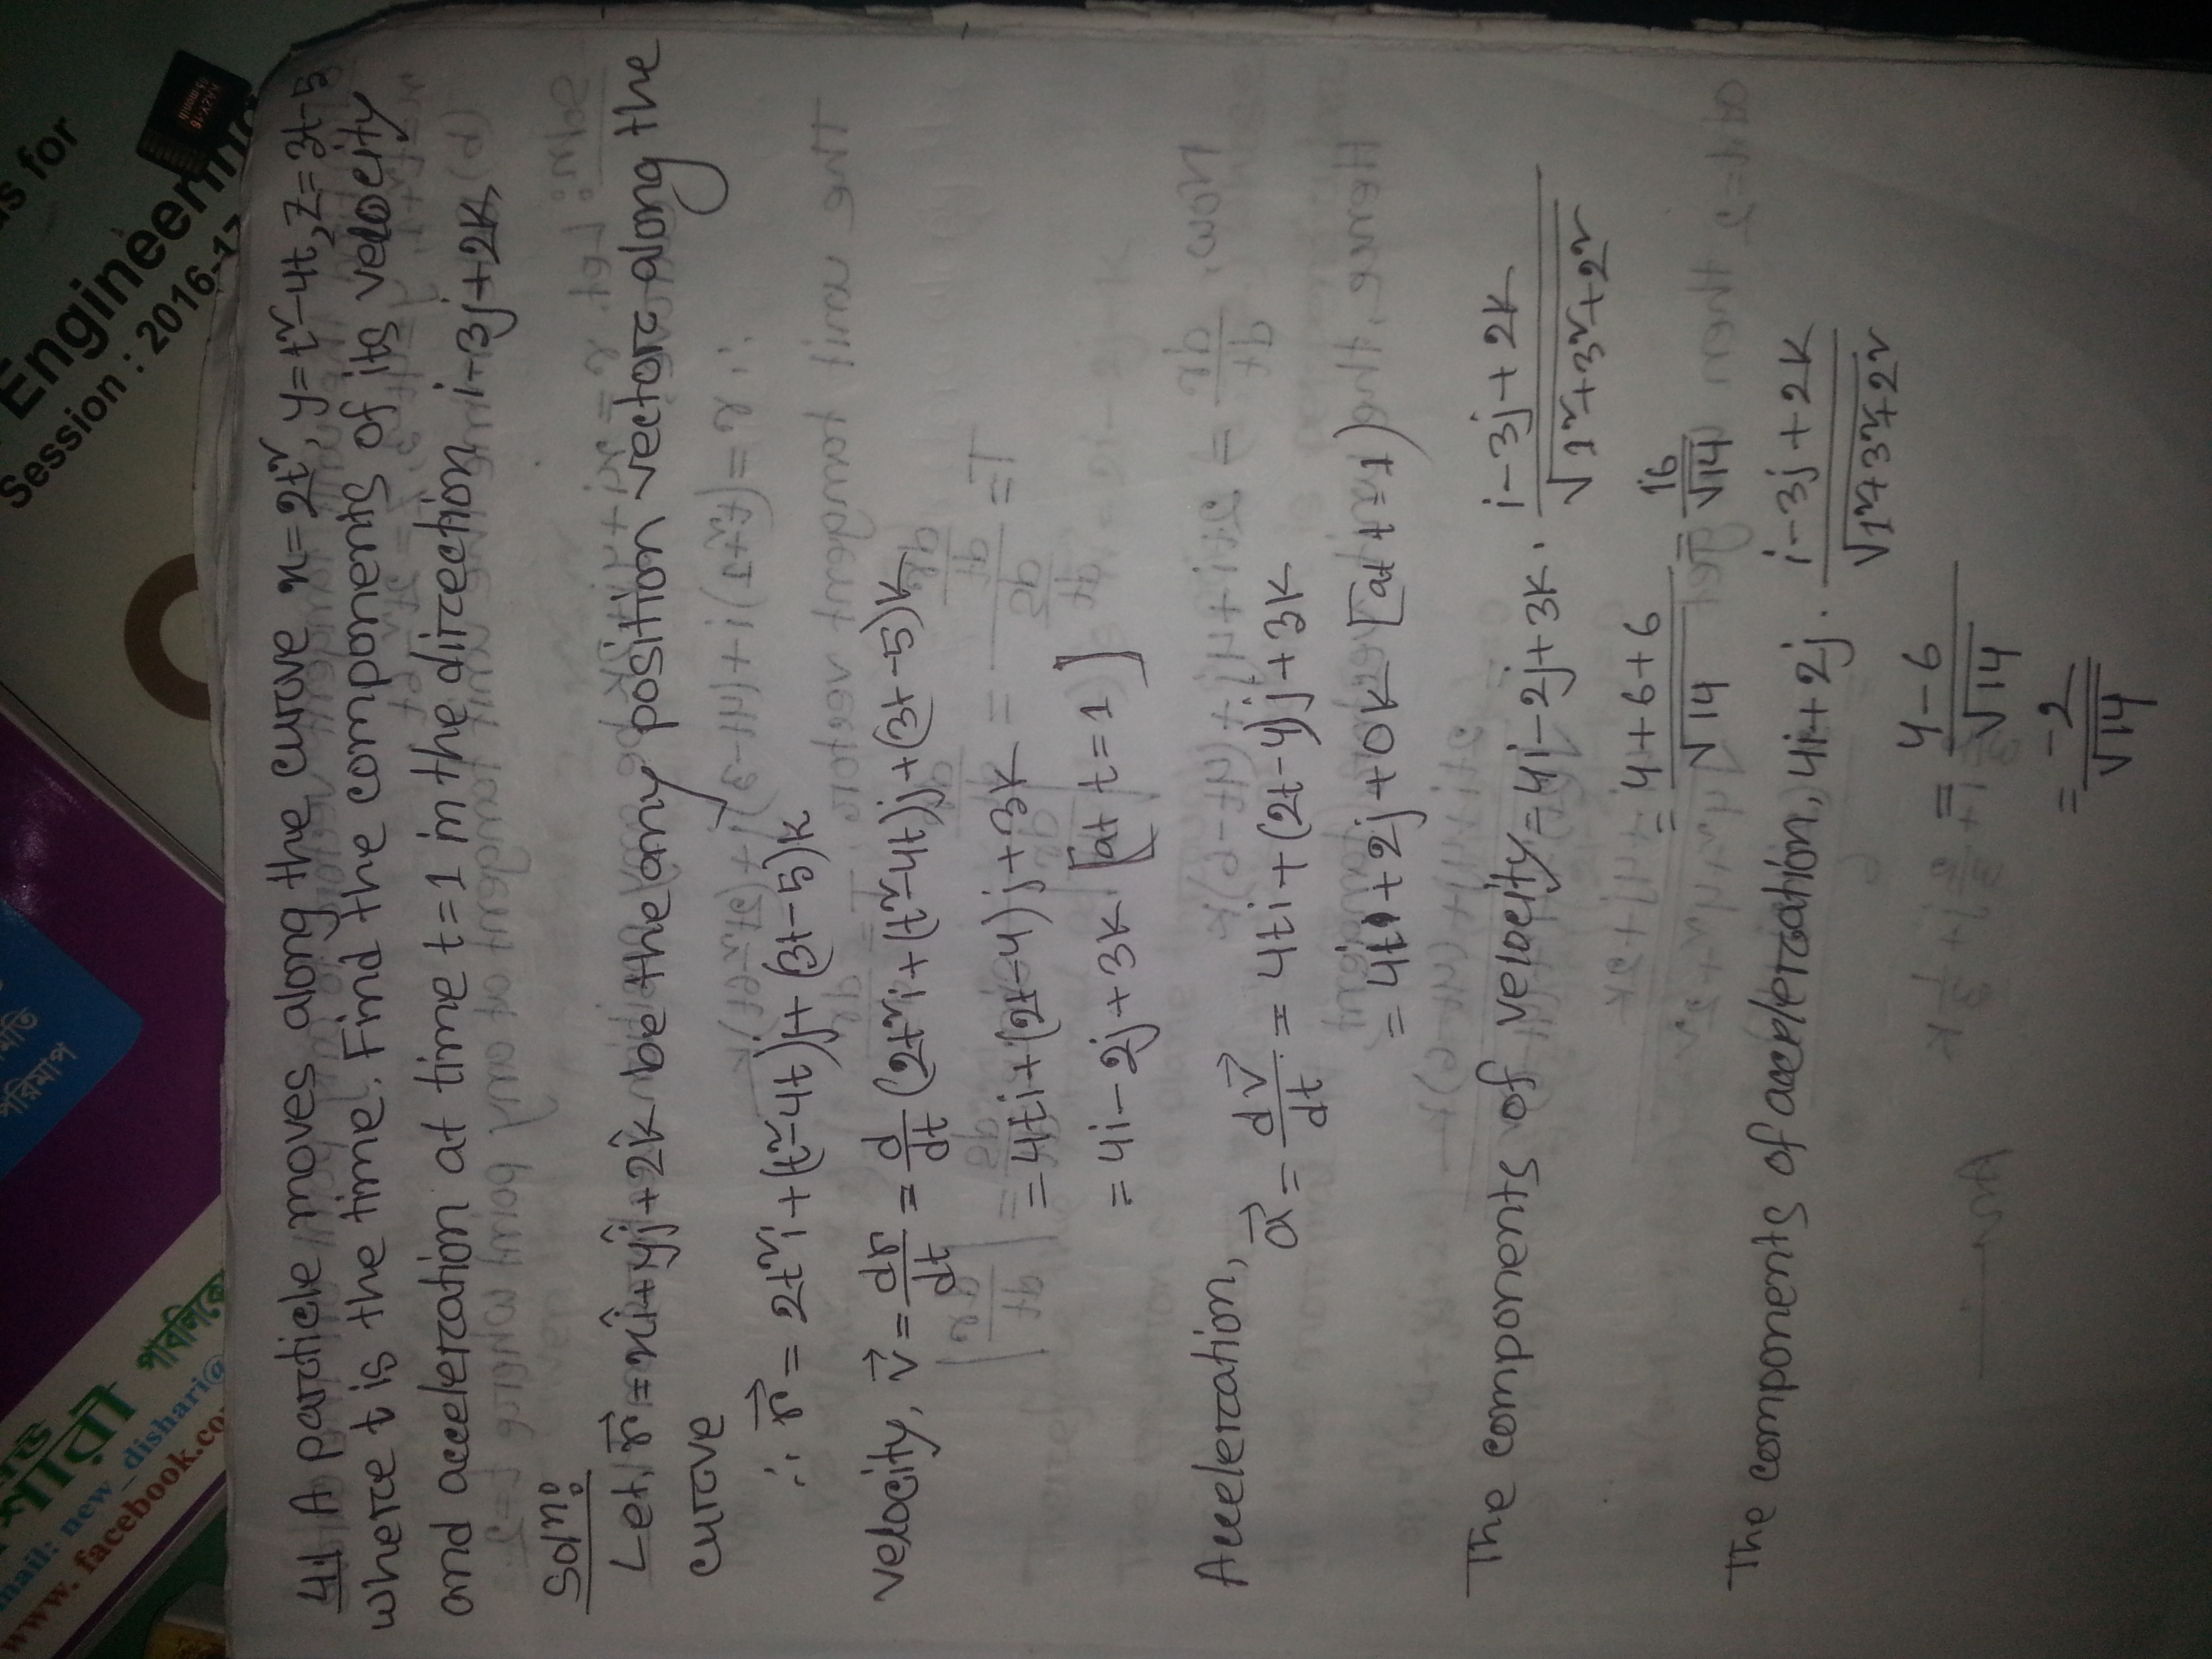 শারী
পাবলিকে
mail: new_dishari@
www. facebook.co
পরিমাপ
s for
Engineering
Session : 2016-17
41 A particle moves along the curve x=2t², y=t²-4t, z=3t-5
where t is the time. Find the components of its velocity
and acceleration at time t=1 in the direction i-3j+2k
Soln:
Let, r⃗ = xî+yĵ+2k̂ be the any position vector along the
curve
∴ r⃗ = 2t²i+(t²-4t)j+(3t-5)k
velocity, v⃗ = dr/dt = d/dt (2t²i+(t²-4t)j+(3t-5)k
= 4ti+(2t-4)j+3k
= 4i-2j+3k [at t=1]
Acceleration,
a⃗ = dv⃗/dt = 4ti+(2t-4)j+3k
= 4i+2j+0k [at t=1)
The components of velocity = 4i-2j+3k . i-3j+2k/√1²+3²+2²
= 4+6+6/√14 = 16/√14
The components of acceleration, 4i+2j . i-3j+2k/√1²+3²+2²
= 4-6/√14
= -2/√14